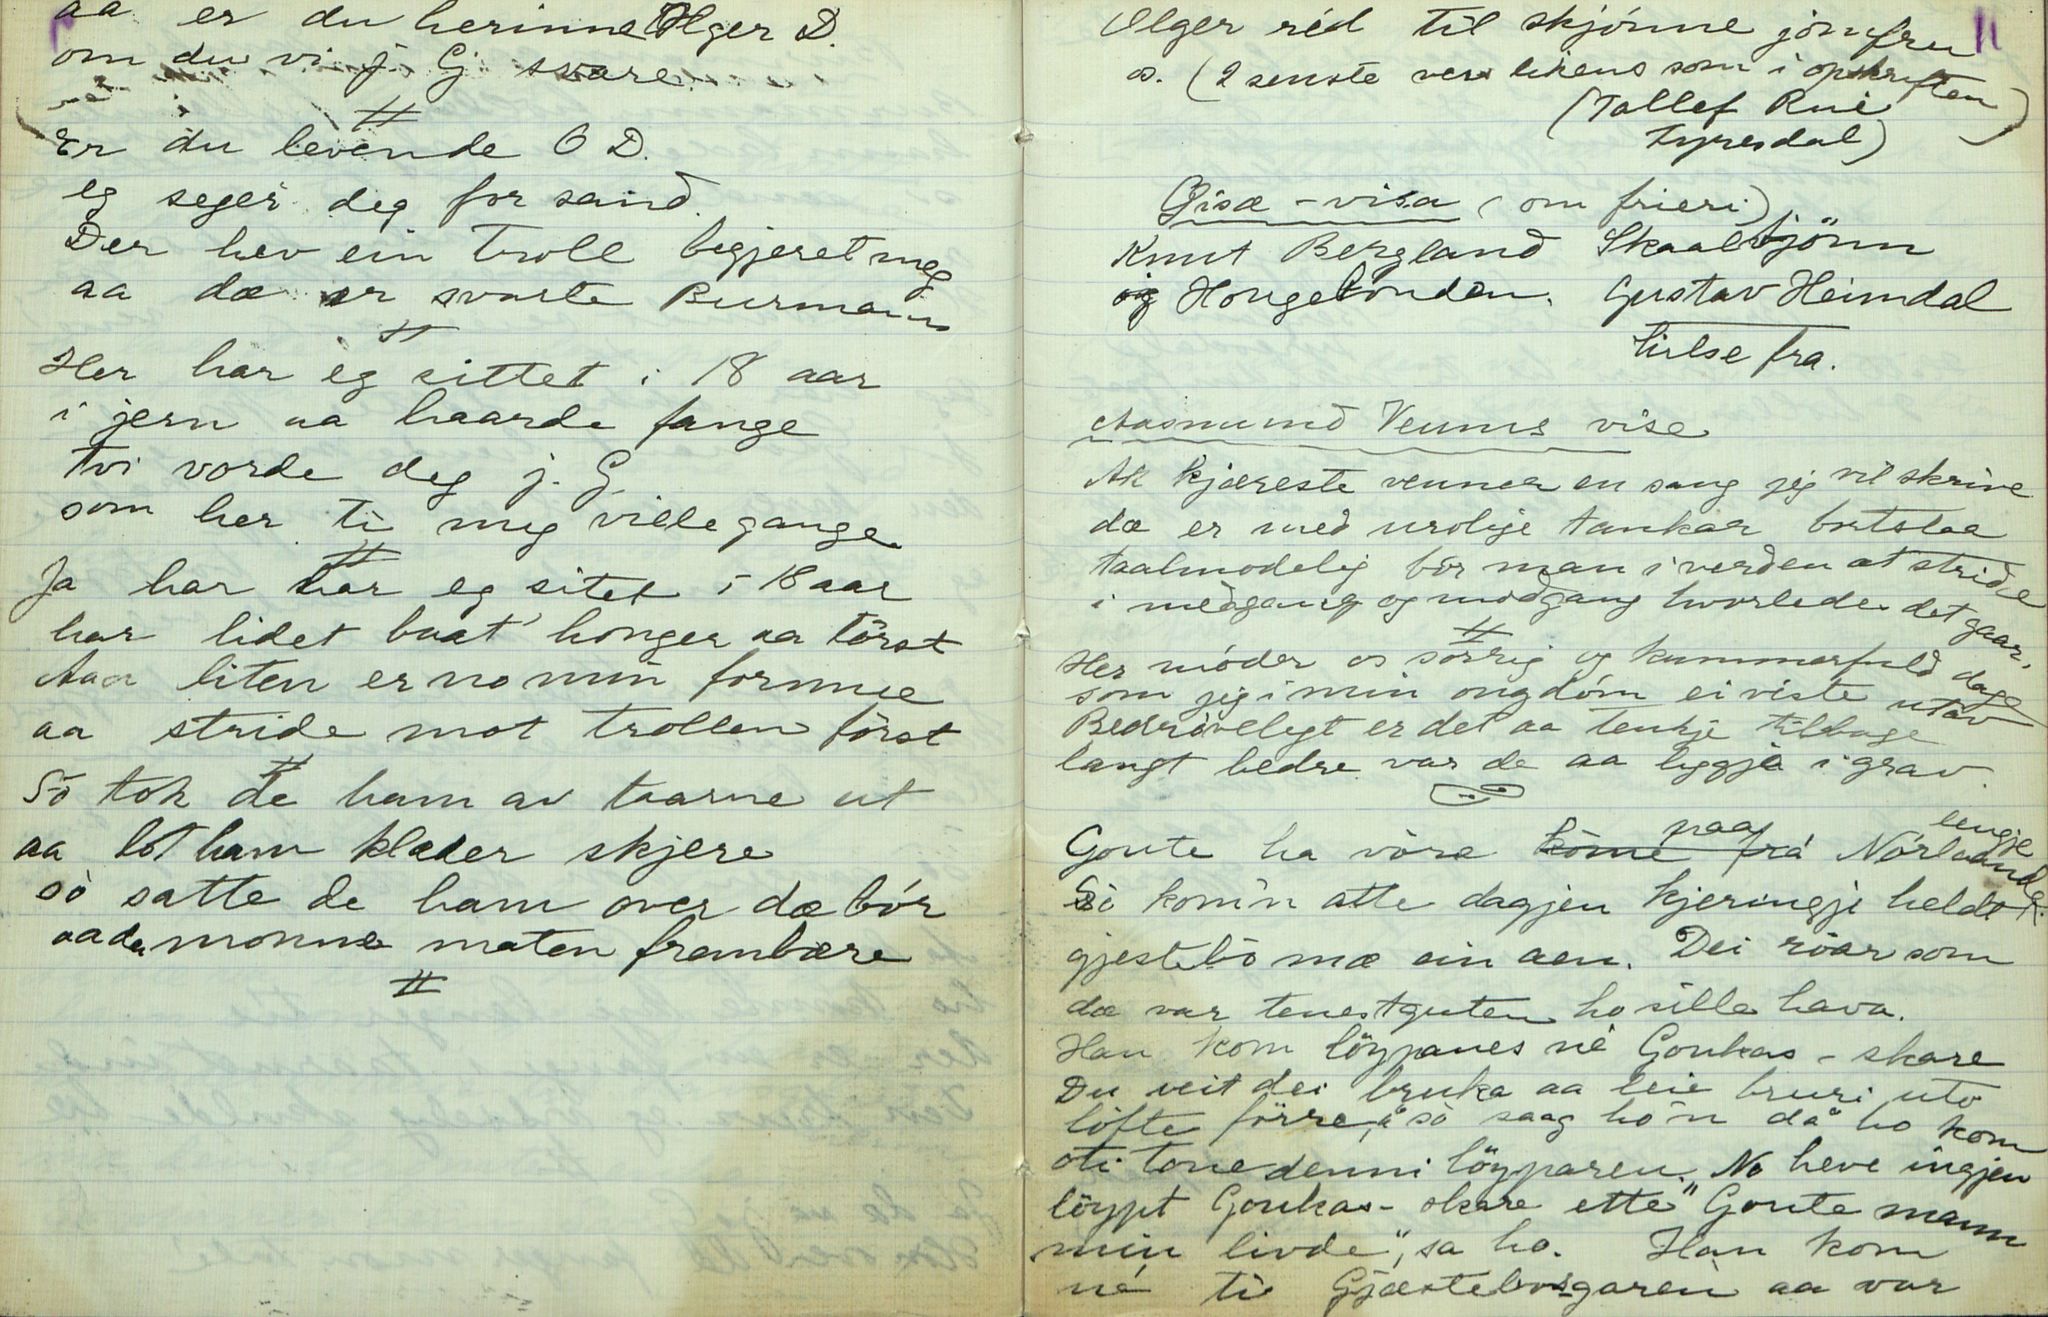 aa er du herinne Olger D.
om du vi j. G svare
#
Er du levende O D.
eg seger deg for sand.
Der hev ein Troll begjeret meg
aa dæ er svarte Burmann
#
Her har eg sittet i 18 aar
i jern aa haarde fange
tvi vorde deg j. G
som her ti meg ville gange
#
Ja har har eg sitet i 18 aar
har lidet baat' honger aa törst
Aaa liten er no min formue
aa stride mot trollen först
#
So tok de ham av taarne ut
aa lot ham klæder skjere
so satte de ham over dæ bór
aa de monne maten frambære
#
11
Olger réd til skjónne jomfru
os. (2 senste vers likens som i opskriften)
(Tallef Rui
Fyresdal)
Gisæ-visa (om frieri)
Knut Bergland Skaalbjönn
og Hougebonden. Gustav Heimdal
hilse fra.
Aasmund Veums vise
Ak kjæreste venner en sang jeg vil skrive
dæ er med urolije tankar botslaa
taalmodelig bör man i verden at stride
i medgang og modgang hvorledes det gaar.
#
Her móder os sörrig og kummerfuld dage
som jeg i min ongdóm ei viste utav
Bedróvelegt er det aa tenkje tilbage
langt bedre var de aa liggja i grav.
Goute ha vöre kome frá paa Nórlaande lengje
Só kom'n atte dagjen kjeringji heldt
gjestebö mæ ein aen. Dei röar som
dæ var tenestguten ho sille hava.
Han kom löypanes ne Goukas-skare
Du veit dei bruka aa leie bruri uto
lófte förre, å so saag ho'n då ho kom
oti tone denni löyparen. No heve ingjen
löypt Goukas-skare ette "Goute mann
min livde", sa ho. Han kom
né ti Gjæstebosgaren aa var